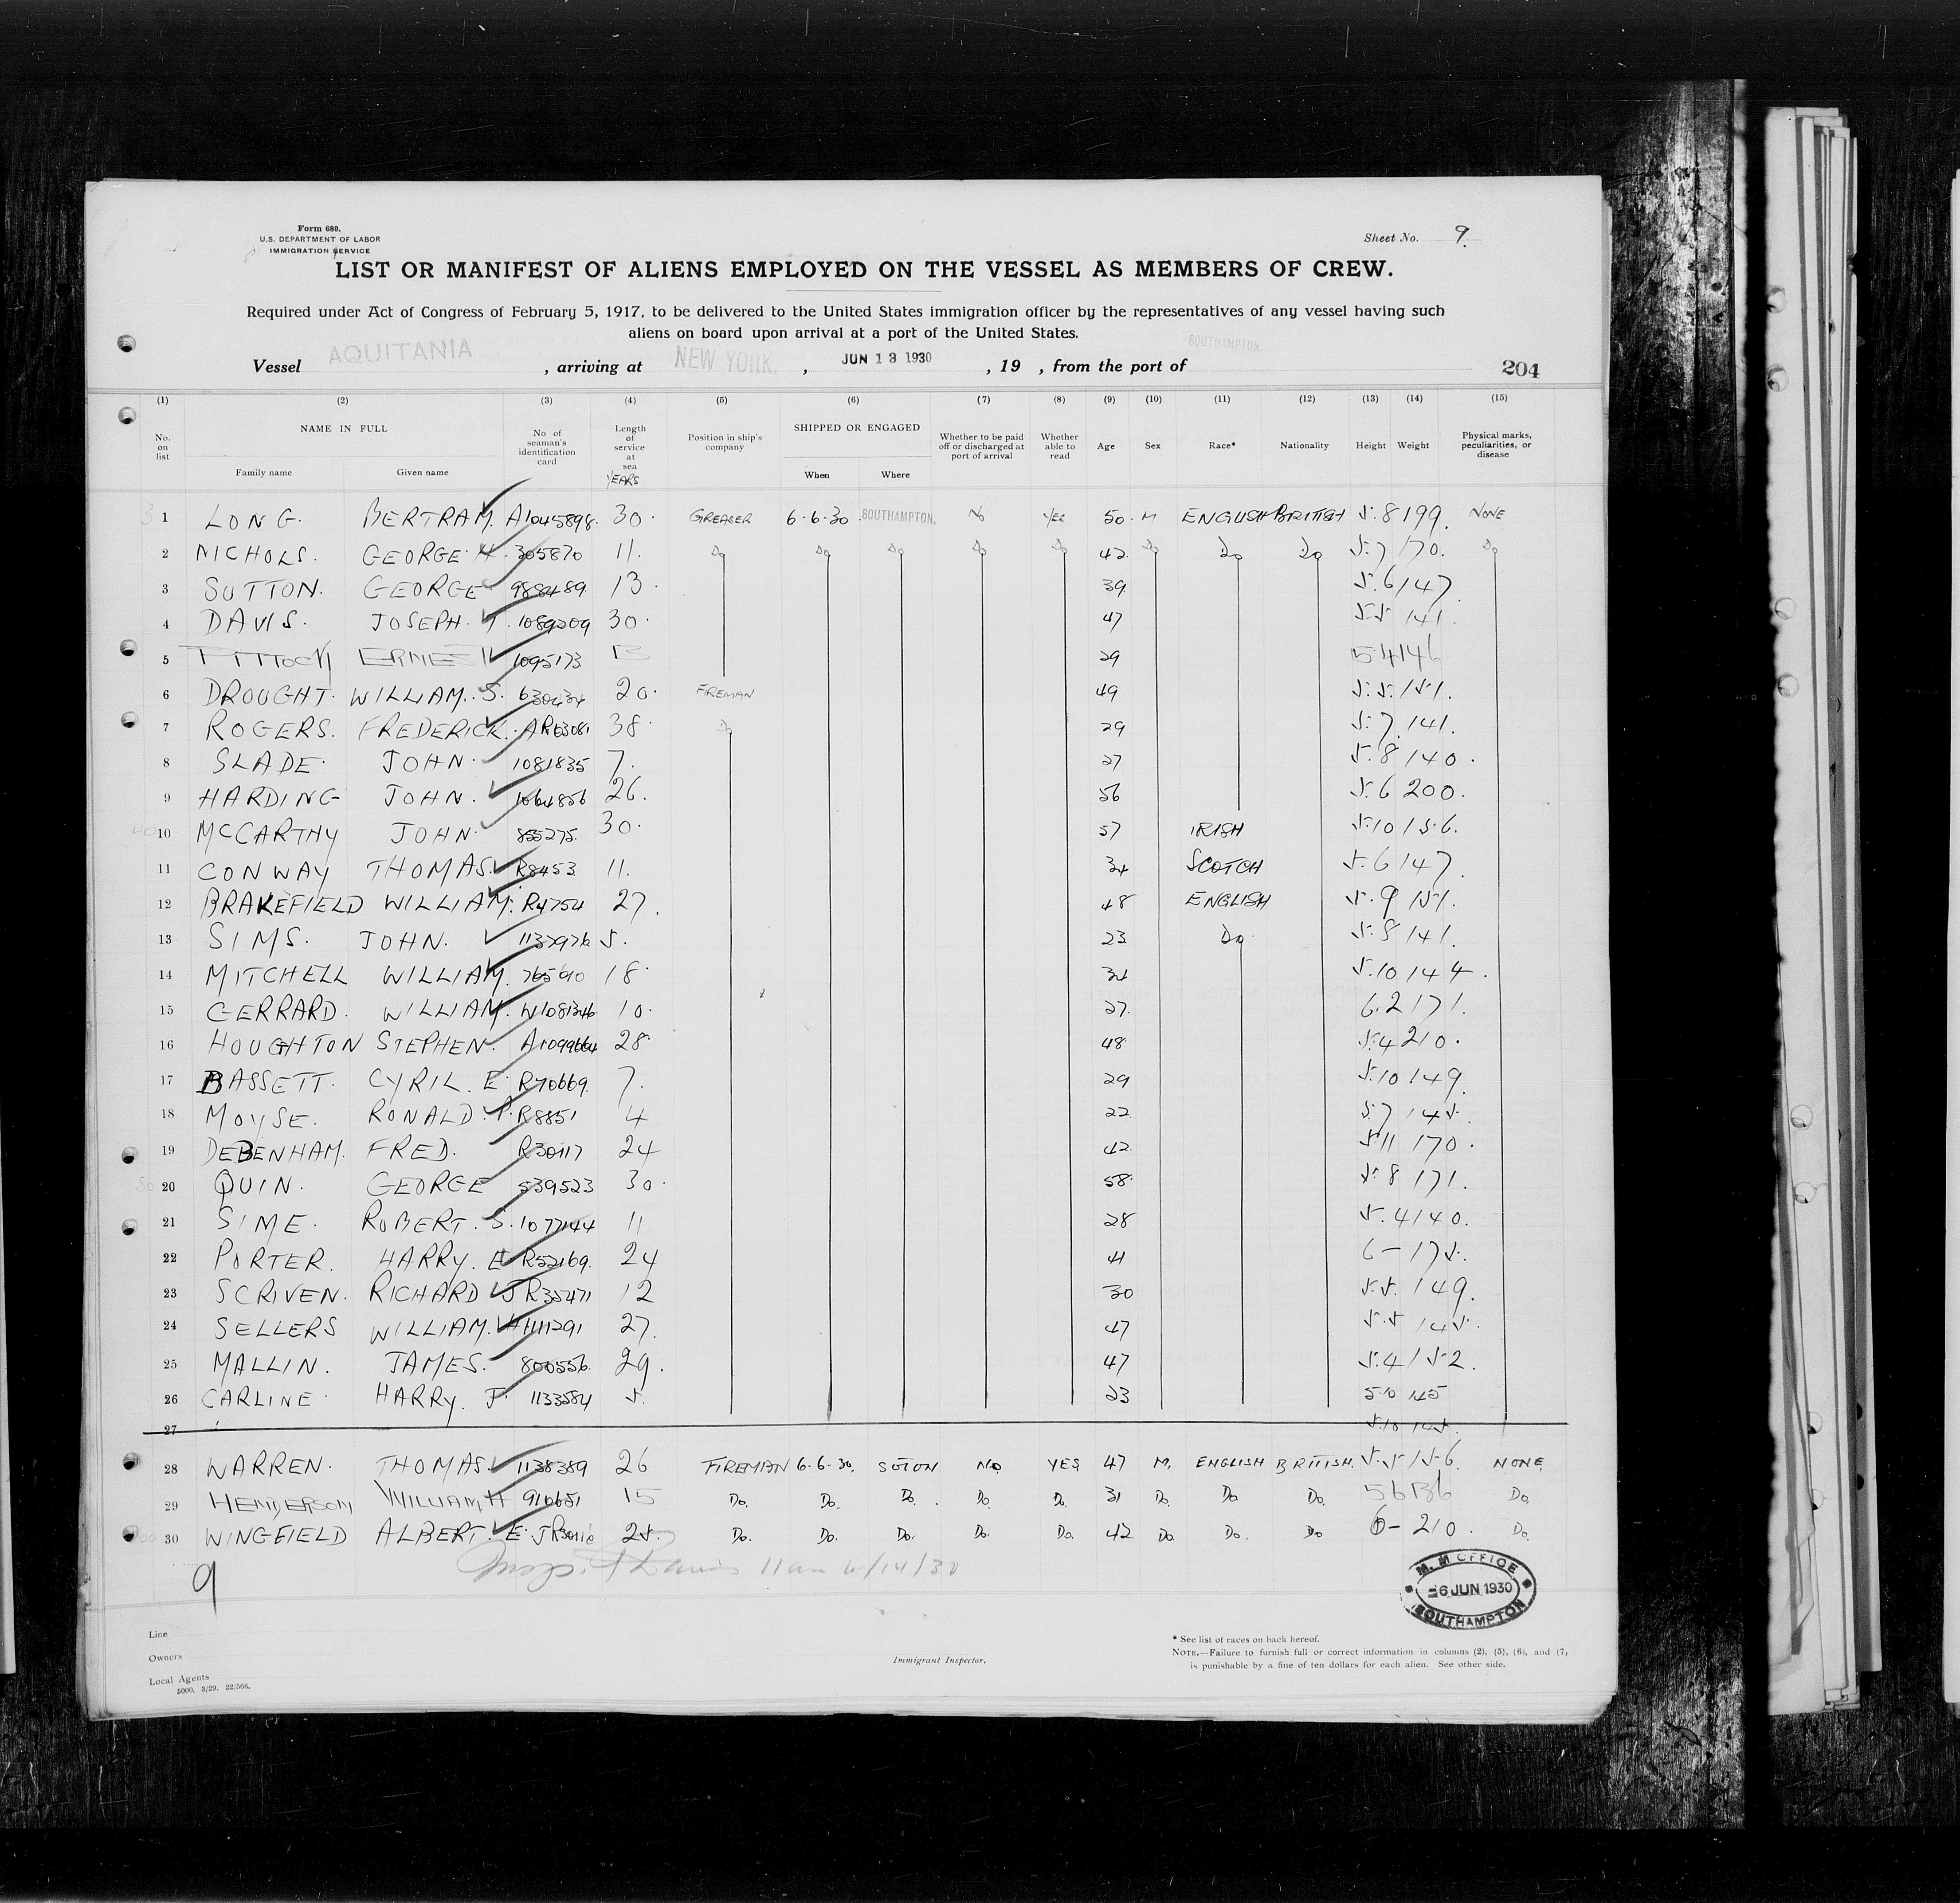 Form 680.
U.S. DEPARTMENT OF LABOR
IMMIGRATION SERVICE
Sheet No. 9.
LIST OR MANIFEST OF ALIENS EMPLOYED ON THE VESSEL AS MEMBERS OF CREW.
Required under Act of Congress of February 5, 1917, to be delivered to the United States immigration officer by the representatives of any vessel having such
aliens on board upon arrival at a port of the United States.
Vessel AQUITANIA, arriving at NEW YORK, JUN 13 1930, 19 , from the port of SOUTHAMPTON. 204
(1) (2) (3) (4) (5) (6) (7) (8) (9) (10) (11) (12) (13) (14) (15)
No. on list NAME IN FULL Family name Given name No. of seaman's identification card Length of service at sea YEARS Position in ship's company SHIPPED OR ENGAGED When Where Whether to be paid off or discharged at port of arrival Whether able to read Age Sex Race* Nationality Height Weight Physical marks, peculiarities, or disease
1 LONG. BERTRAM. A1045898. 30. GREASER 6.6.30. SOUTHAMPTON. No YES 50. M ENGLISH BRITISH 5.8 199. NONE
2 NICHOLS. GEORGE H. 305870 11. Do Do Do Do Do 42. Do Do Do 5.7 170. Do
3 SUTTON. GEORGE 988489. 13. 39 5.6 147.
4 DAVIS. JOSEPH. T. 1089209 30. 47 5.5 141.
5 1095173 13 29 5 4 146
6 DROUGHT. WILLIAM. S. 630434 20. FIREMAN 49 5.5. 151.
7 ROGERS. FREDERICK. 38. Do 29 5.7. 141.
8 SLADE. JOHN. 1081835 7. 27 5.8 140.
9 HARDING JOHN. 1064856 26. 56 5.6 200.
10 MCCARTHY JOHN. 855275. 30. 57 IRISH 5.10 156.
11 CONWAY THOMAS. R8453 11. 34 SCOTCH 5.6 147.
12 BRAKEFIELD WILLIAM. R4754 27. 48 ENGLISH 5.9 151.
13 SIMS. JOHN. 1137976 5. 23 Do 5.8 141.
14 MITCHELL WILLIAM. 18. 34 5.10 144.
15 GERRARD. WILLIAM. W1081346 10. 27. 6.2 171.
16 HOUGHTON STEPHEN. A1099664 28. 48 5.4 210.
17 BASSETT. CYRIL. E. R70669. 7. 29 5.10 149.
18 MOYSE. RONALD. P. R8851 4 22 5.7 145.
19 DEBENHAM. FRED. R30117 24 42. 5.11 170.
20 QUIN. GEORGE 539523 30. 58. 5.8 171.
21 SIME. ROBERT. S. 1077144 11 28 5.4 140.
22 PORTER. HARRY. E R52169. 24 41 6 - 175.
23 SCRIVEN. RICHARD J R35471 12 30 5.5. 149.
24 SELLERS WILLIAM. H 1111291 27. 47 5.5 145.
25 MALLIN. JAMES. 800556. 29. 47 5.4 152.
26 CARLINE. HARRY. J. 1133584 5. 23 5.10 145
27 5.10 145.
28 WARREN. THOMAS. 1138389 26 FIREMAN 6.6.30. SOTON NO YES 47 M. ENGLISH BRITISH. 5.5 156. NONE
29 HENDERSON WILLIAM H 910651 15 Do. Do. Do. Do. Do. 31 Do. Do Do. 5 6 136 Do
30 WINGFIELD ALBERT. E. 25. Do. Do. Do. Do. Do. 42 Do. Do. Do 6 - 210. Do.
11 am 6/14/30
9
M. M OFFICE
6 JUN 1930
SOUTHAMPTON
Line
Owners
Local Agents
5000. 3/29. 22/566.
Immigrant Inspector.
* See list of races on back hereof.
NOTE.—Failure to furnish full or correct information in columns (2), (5), (6), and (7,
is punishable by a fine of ten dollars for each alien. See other side.